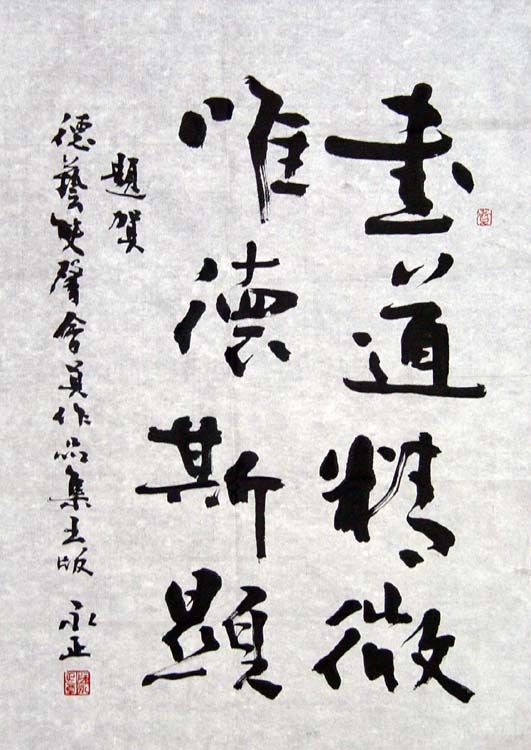 書道精微
唯德斯顯
題賀
德藝雙馨會員作品集出版 永正